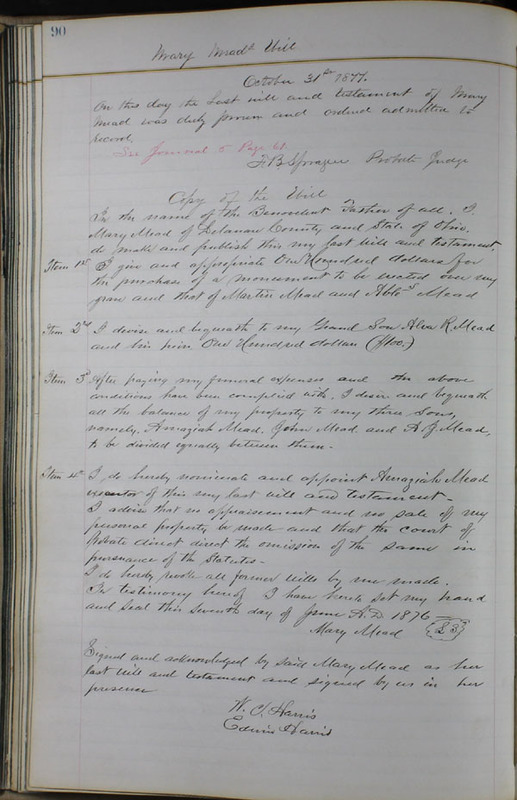 90
Mary Mead's Will
October 31st 1877.
On this day the Last will and testament of Mary
Mead was duly proven and ordered admitted to
Record.
See Journal 5 Page 61.
F. B. Sprague Probate Judge
Copy of the Will
In the name of the Benevolent Father of all. I,
Mary Mead of Delaware County, and State of Ohio,
do make and publish this my last will and testament.
Item 1st I give and appropriate One Hundred dollars for
the purchase of a monument to be erected over my
grave and that of Martin Mead and Mead
Item 2nd I devise and bequeath to my Grand Son Alva R. Mead
and his heirs One Hundred dollars ($100.)
Item 3d After paying my funeral expenses and the above
conditions have been complied with, I desire and bequeath
all the balance of my property to my three Sons,
namely, Amaziah Mead, John Mead and A J Mead,
to be divided equally between them.
Item 4th I do hereby nominate and appoint Amaziah Mead
executor of this my last will and testament-
I advise that no appraisement and no sale of my
personal property be made and that the court of
Probate direct direct the omission of the same in
pursuance of the Statutes-
I do hereby revoke all former wills by me made.
In testimony hereof I have hereto set my hand
and seal this seventh day of June A.D. 1876-
Mary Mead {L S}
Signed and acknowledged by said Mary Mead as her
last will and testament and signed by us in her
presence
W. C. Harris
Edwin Harris